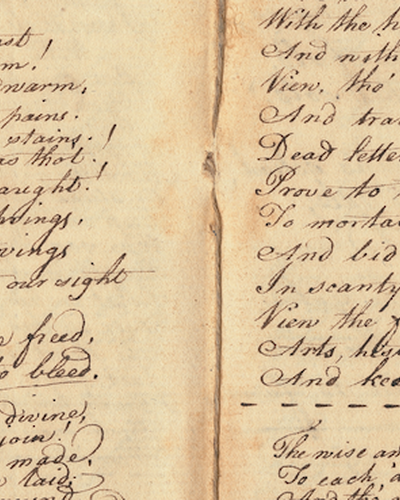 m!
warm,
pains.
stains!
thot!
aught!
wings
our sight
freed,
to bleed.
divine,
join!
made,
laid;
With the h
And with
View, tho'
And tra
Dead lette
Prove to
To morta
And bid
In scanty
View the
Arts, hist
And kee
The wise an
To each, a
And the